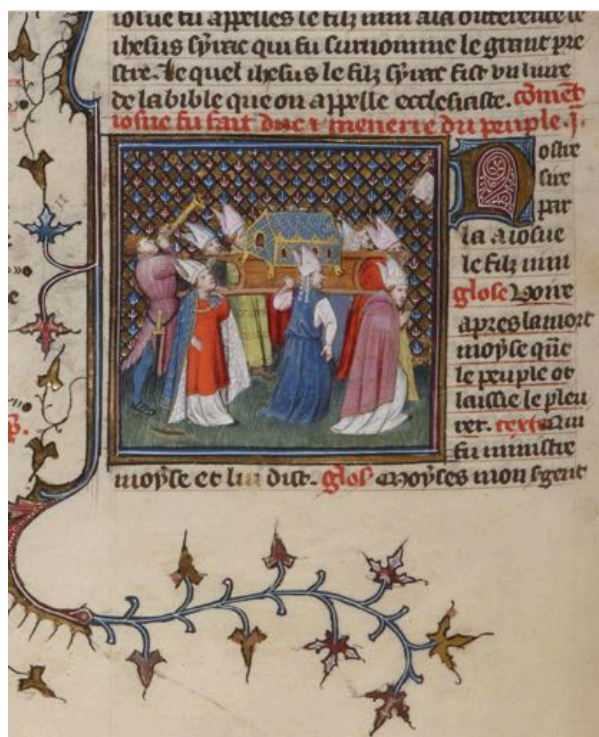 iosue fu appelles le filz nun a la difference de
ihesus syrac qui fu surnomme le grant pre
stre. le quel ihesus le filz syrac fist vn liure
de la bible que on appelle ecclesiaste. cōmēt
iosue fu fait duc & meneur du peuple .j.
Nostre
sire
par
la a iosue
le filz nun
glose Voire
apres la mort
moyse q̄ue
le peuple ot
laissie le pleu
rer. texte Qui
fu ministre
moyse et lui dist. glos Moyses mon sgent